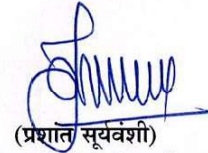 (प्रशांत सूर्यवंशी)